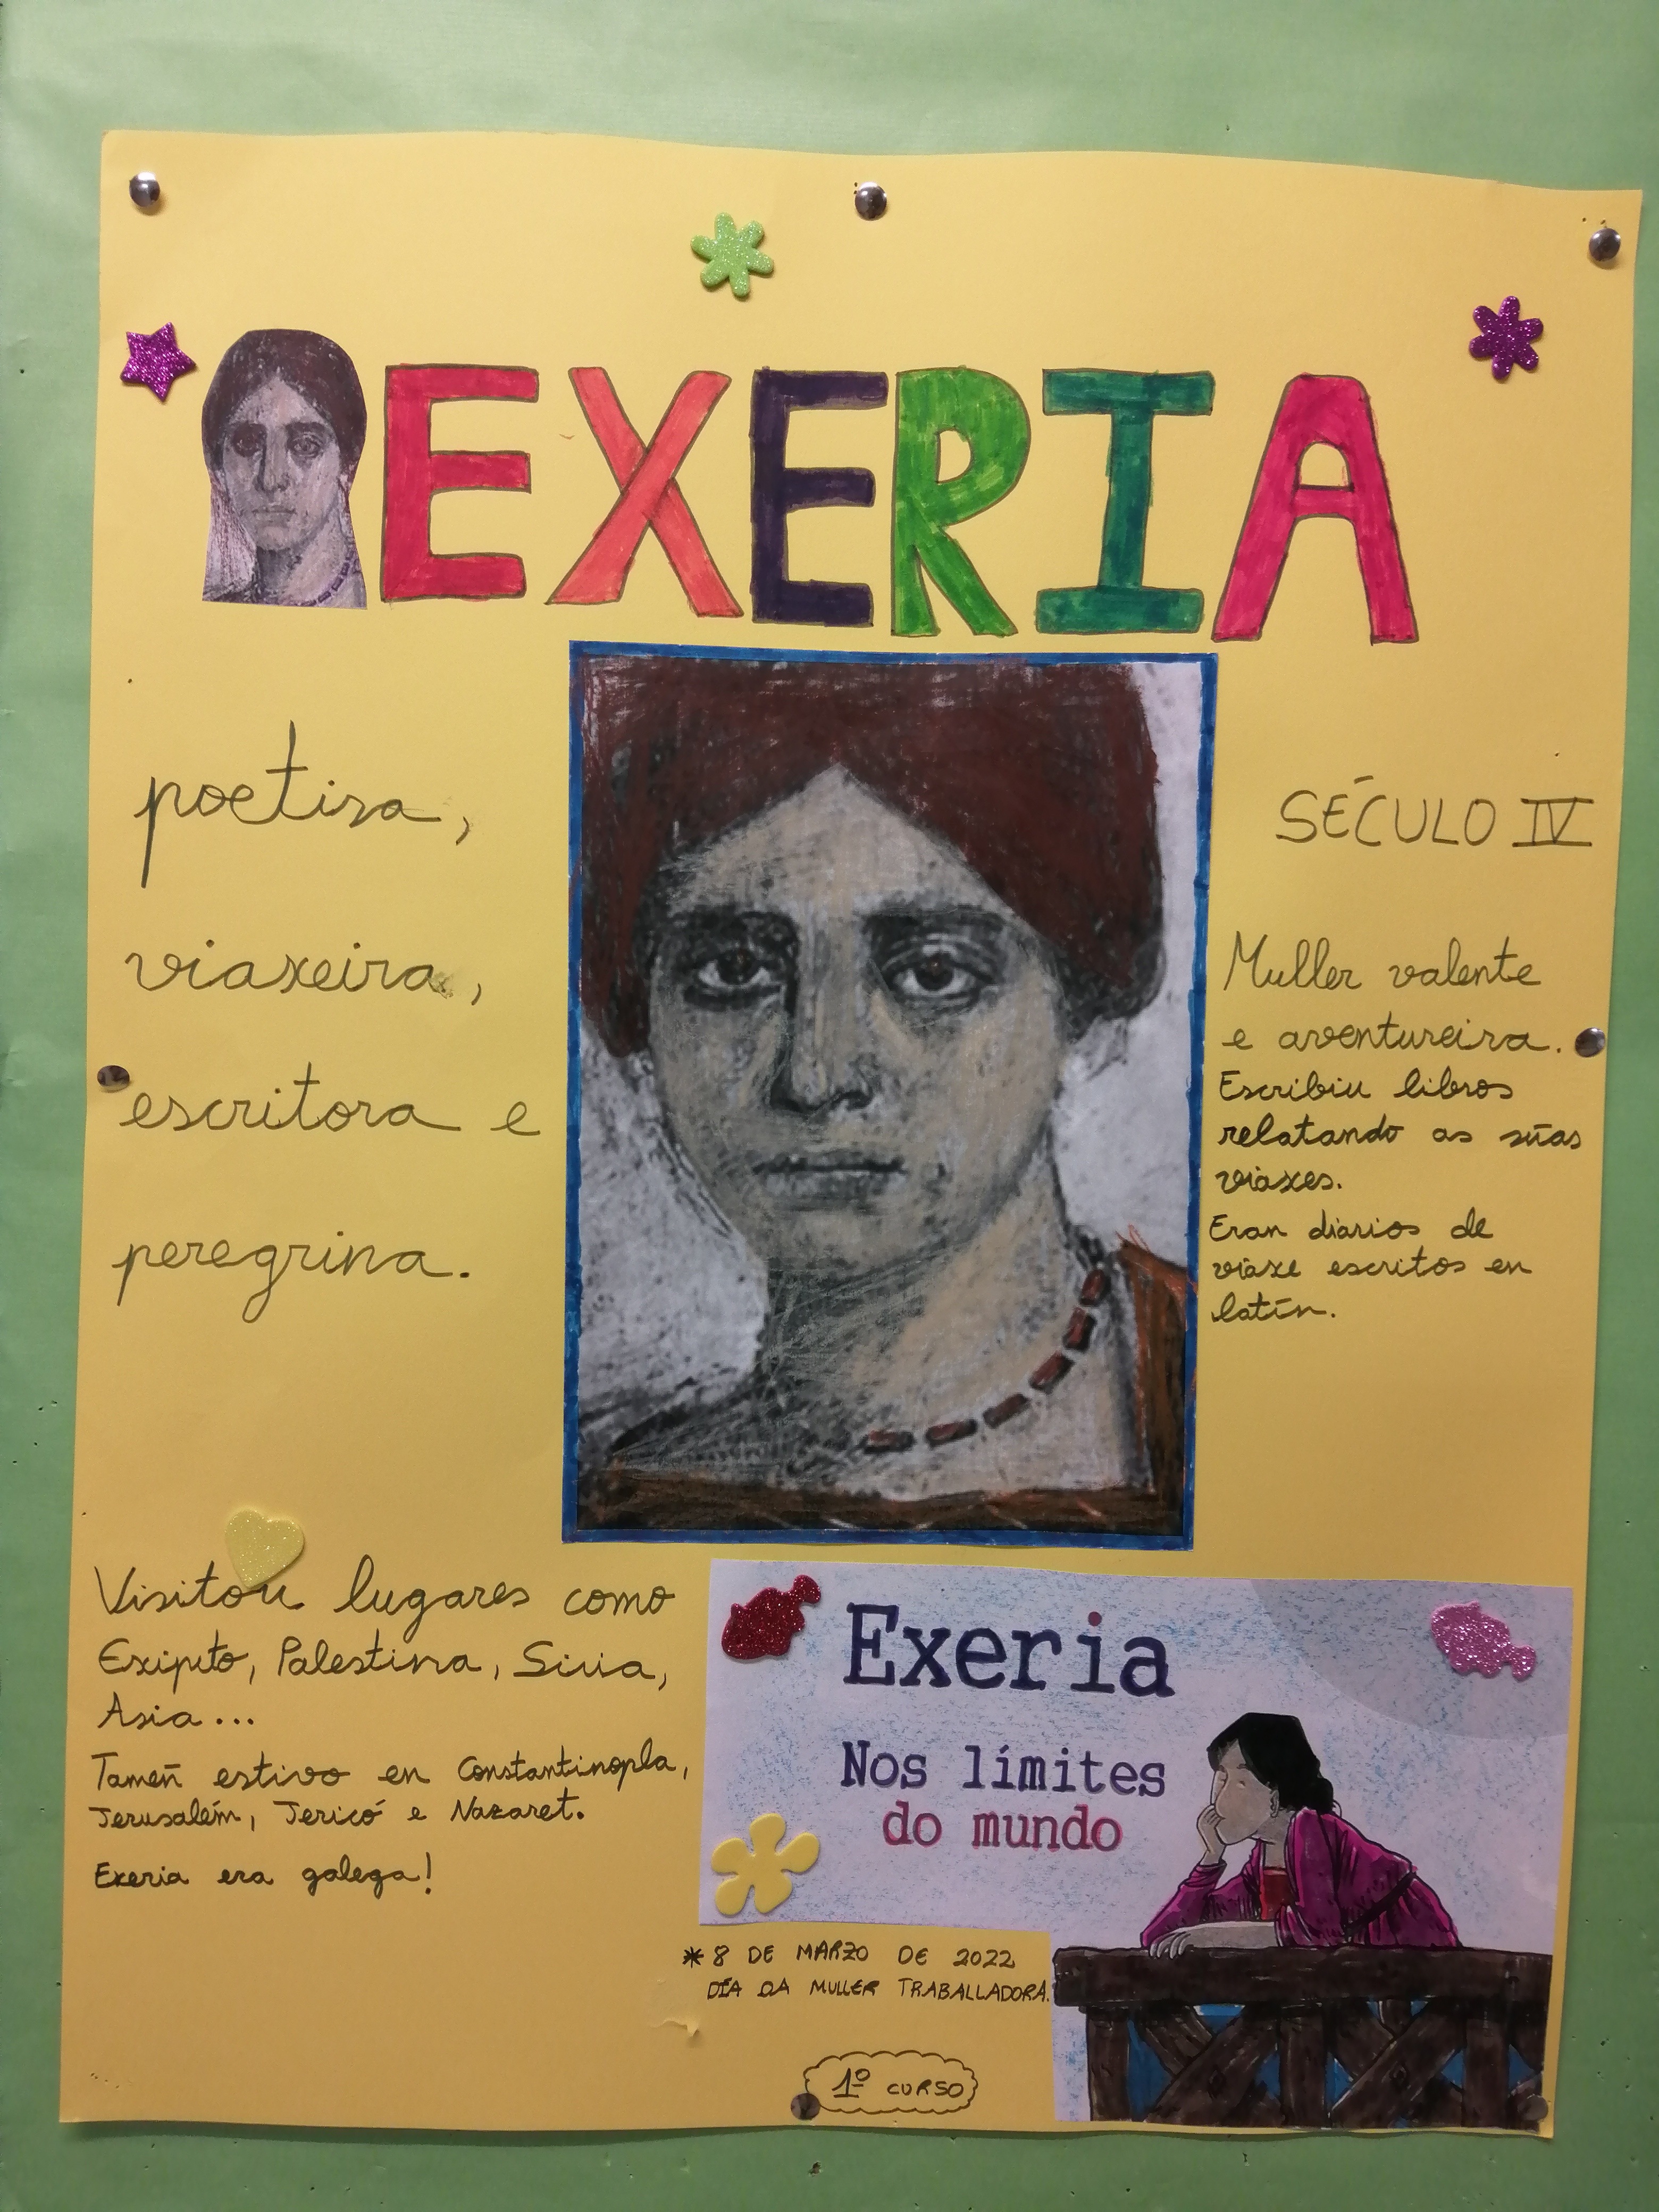 EXERIA
poetisa,
viaxeira,
escritora e
peregrina.
SÉCULO IV
Muller valente
e aventureira.
Escribiu libros
relatando as súas
viaxes.
Eran diarios de
viaxe escritos en
latín.
Visitou lugares como
Exipto, Palestina, Siria,
Asia...
Tamén estivo en Constantinopla,
Jerusalém, Jericó e Nazaret.
Exeria era galega!
Exeria
Nos límites
do mundo
* 8 DE MARZO DE 2022
DÍA DA MULLER TRABALLADORA.
1º CURSO